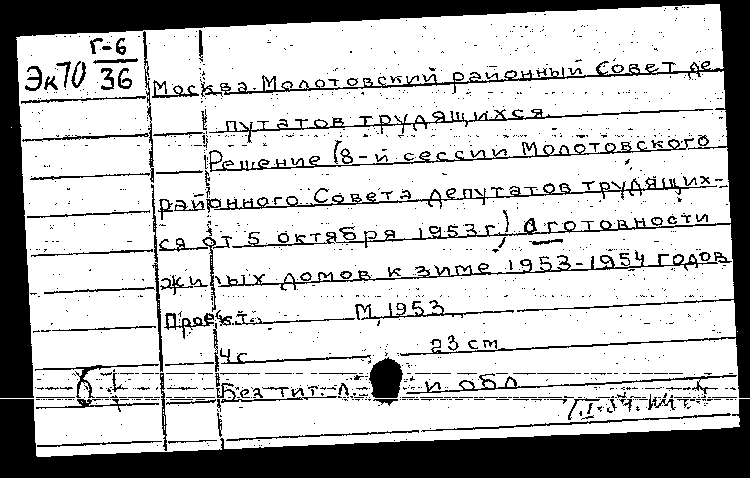 Г-6
Эк70 36 Москва. Молотовский районный Совет де-
путатов трудящихся.
Решение (8-й сессии Молотовского
районного Совета депутатов трудящих-
ся от 5 октября 1953 г.) о готовности
жилых домов к зиме 1953-1954 годов
Проект. М, 1953
4с 23 см
Без тит. л. и обл